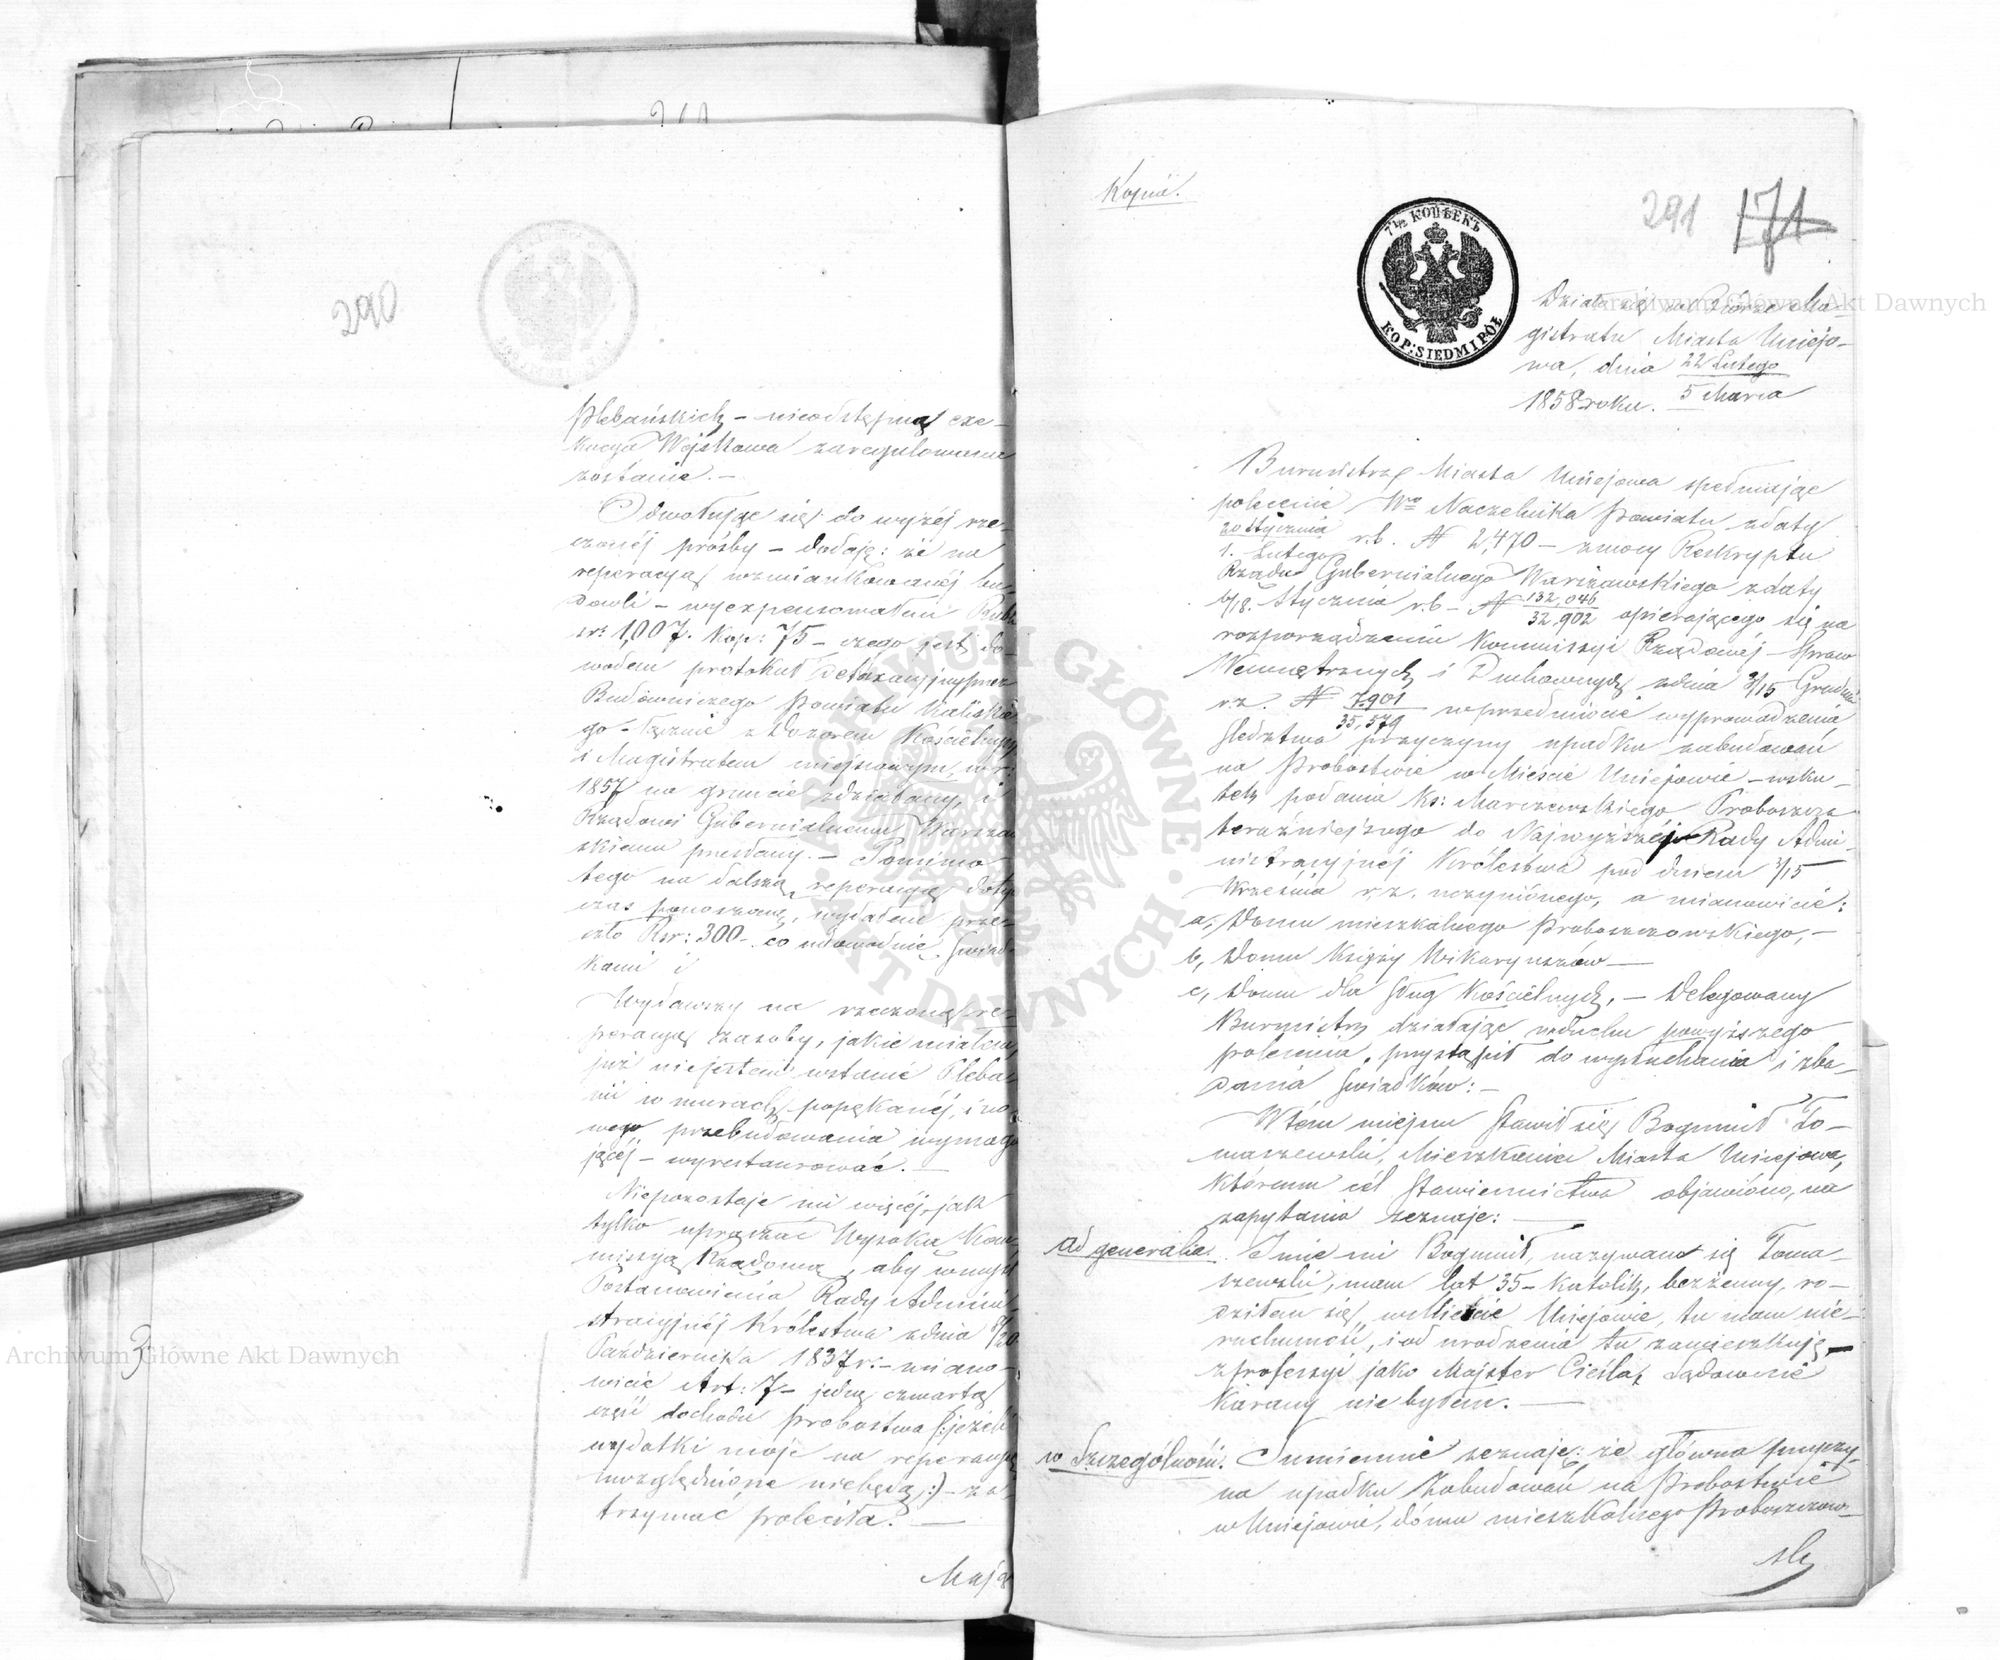 290
Plebańskich – nieodstępną exe-
kucyą Wojskową zaregulowane
zostanie. –
Odwołując się do wyżéj rze-
czonéj prośby – dodaję: że na
reperacyą wzmiankowanéj bu-
dowli – wyexpensowałem Rubli
sr: 1,007. kop: 75 – czego jest do-
wodem protokuł Detaxacyjny przez
Budowniczego Powiatu Kaliskie
go – łącznie z Dozorem Kościelnym
i Magistratem miejscowym, w r:
1857 na gruncie zdziałany, i
Rządowi Gubernialnemu Warszaw
skiemu przesłany. – Pomimo
tego na dalszą reperacyę doty
czas ponoszoną, wydałem prze-
szło Rsr: 300 – co udowodnię Świad-
kami i
Wydawszy na rzeczoną re-
peracyą zasoby, jakie miałem,
już niejestem wstanie Pleba-
nii w murach popękanéj, i no-
wego przebudowania wymaga
jącéj – wyrestaurować. –
Niepozostaje mi więcéj, jak
tylko upraszać Wysoką Kom-
missyą Rządową, aby wmyśl
Postanowienia Rady Admini-
stracyjnéj Królestwa zdnia 8/20
Października 1837 r: – miano-
wicie Art: 7 – jedną czwartą
część dochodu probostwa (:jeżeli
wydatki moje na reperacyą
uwzględnione niebędą:) – za-
trzymać poleciła. –
Mają
3
Kopia.
291 171
7½ КОПѢЕКЪ
KOP: SIEDM I PÓŁ
Działo się w Biórze Ma-
gistratu Miasta Uniejo-
wa, dnia 22 Lutego
1858 roku. 5 Marca
Burmistrz Miasta Uniejowa spełniając
polecenie Wgo Naczelnika Powiatu zdaty
20 Stycznia
1. Lutego r.b. N 2,470 – zmocy Reskryptu
Rządu Gubernialnego Warszawskiego zdaty
6/18. Stycznia r.b – N 132,046
32,902 opierającego się na
rozporządzeniu Kommissyi Rządowéj Spraw
Wewnętrznych i Duchownych zdnia 3/15 Grudnia
r.z. N 7,901
35,579 wprzedmiocie wyprowadzenia
Śledztwa przyczyny upadku zabudowań
na Probostwie w Mieście Uniejowie – wsku-
tek podania Ks: Marczewskiego Proboszcza
teraźniejszego do Najwyższéj Rady Admi-
nistracyjnéj Królestwa pod dniem 3/15
Września r.z. uczynionego, a mianowicie:
a, Domu mieszkalnego Proboszczowskiego, –
b, Domu Księży Wikaryuszów –
c, Domu dla Sług Kościelnych, – Delegowany
Burmistrz działając wduchu powyższego
polecenia, przystąpił do wysłuchania i zba-
dania Świadków: –
Wtem miejscu Stawił się Bogumił To-
maszewski, Mieszkaniec Miasta Uniejowa,
któremu cél Stawiennictwa objawiono, na
zapytania zeznaje: –
Ad generalia. Imie mi Bogumił, nazywam się Toma-
szewski, mam lat 35 – katolik, bezżenny, ro-
dziłem się wMieście Uniejowie, tu mam nie-
ruchomość, i od urodzenia tu zamieszkuję –
zprofessyi jako Majster Cieśla, Sądownie
Karany nie byłem. –
w Szczególności. Sumiennie zeznaję: że główna przyczy-
na upadku Zabudowań na Probostwie
w Uniejowie, domu mieszkalnego Proboszczow-
sk
Archiwum Główne Akt Dawnych
Archiwum Główne Akt Dawnych
ARCHIWUM GŁÓWNE AKT DAWNYCH